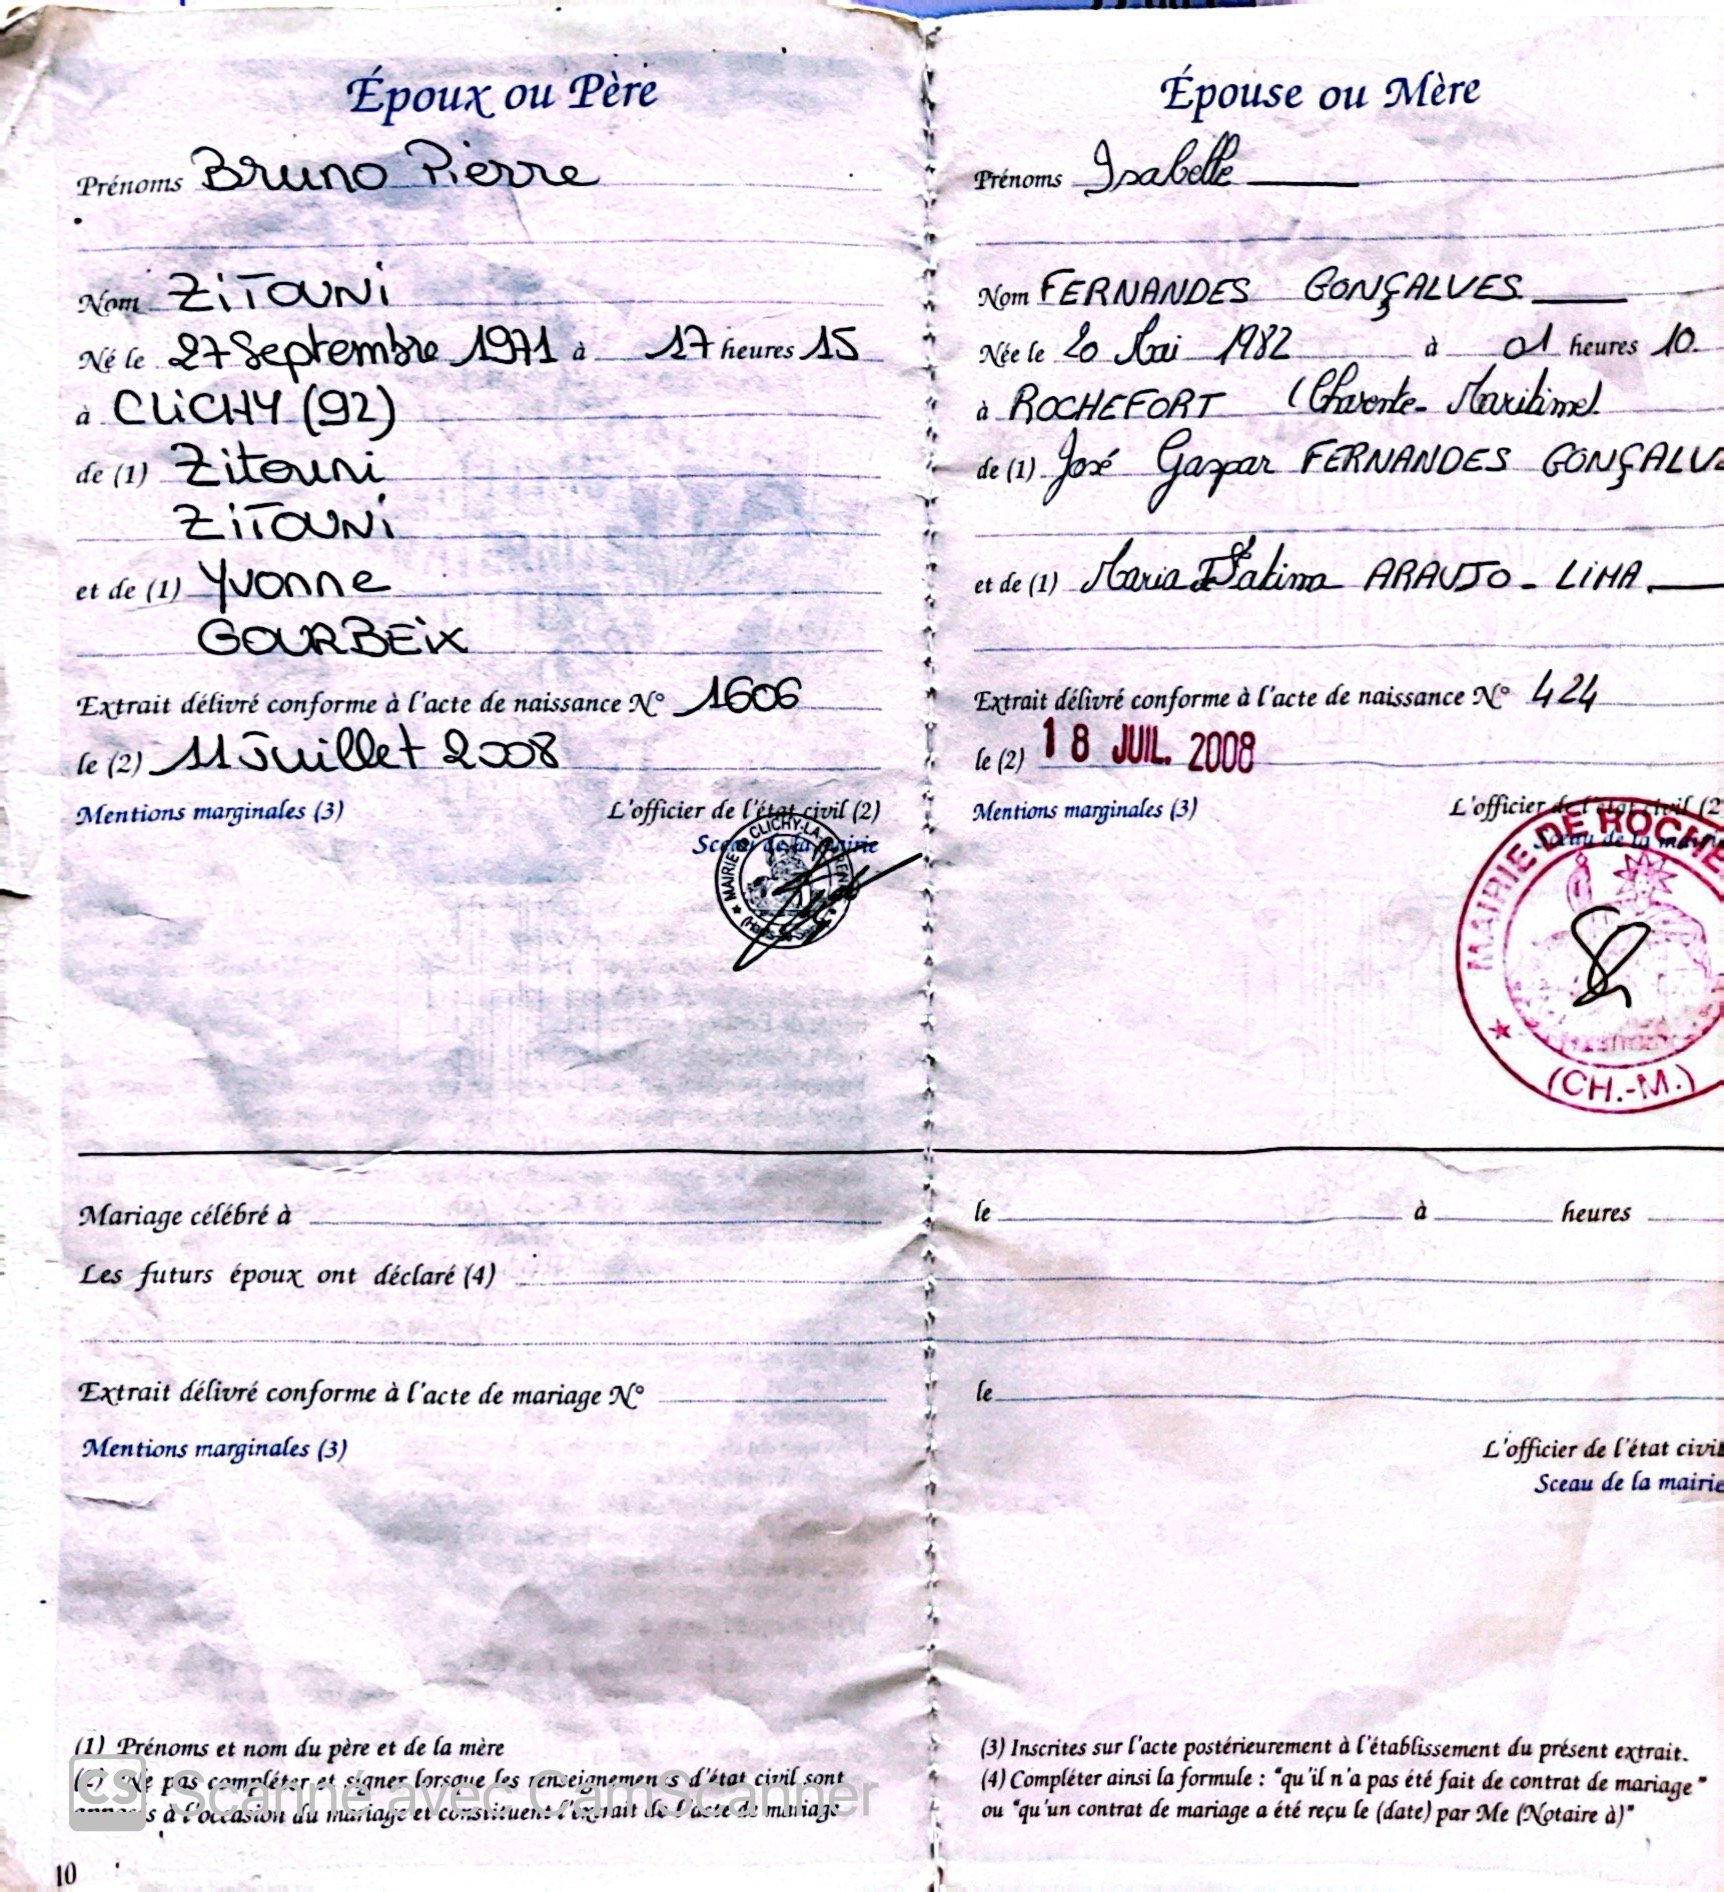 Époux ou Père
Prénoms Bruno Pierre
Nom ZITOUNI
Né le 27 Septembre 1971 à 17 heures 15
à CLICHY (92)
de (1) Zitouni
ZITOUNI
et de (1) Yvonne
GOURBEIX
Extrait délivré conforme à l'acte de naissance N° 1606
le (2) 11 Juillet 2008
Mentions marginales (3) L'officier de l'état civil (2)
Sceau de la mairie
MAIRIE CLICHY-LA-GAREN
Mariage célébré à
Les futurs époux ont déclaré (4)
Extrait délivré conforme à l'acte de mariage N°
Mentions marginales (3)
(1) Prénoms et nom du père et de la mère
(2) Ne pas compléter et signer lorsque les renseignements d'état civil sont
apposés à l'occasion du mariage et constituent l'extrait de l'acte de mariage
CS Scanné avec CamScanner
10
Épouse ou Mère
Prénoms Isabelle
Nom FERNANDES GONÇALVES
Née le 20 Mai 1982 à 01 heures 10.
à ROCHEFORT (Charente-Maritime)
de (1) José Gaspar FERNANDES GONÇALVE
et de (1) Maria Fatima ARAUJO - LIMA
Extrait délivré conforme à l'acte de naissance N° 424
le (2) 18 JUIL. 2008
Mentions marginales (3) L'officier de l'état civil (2
Sceau de la mairie
MAIRIE DE ROCHE
(CH.-M.)
le à heures
le
L'officier de l'état civil
Sceau de la mairie
(3) Inscrites sur l'acte postérieurement à l'établissement du présent extrait.
(4) Compléter ainsi la formule : "qu'il n'a pas été fait de contrat de mariage"
ou "qu'un contrat de mariage a été reçu le (date) par Me (Notaire à)"